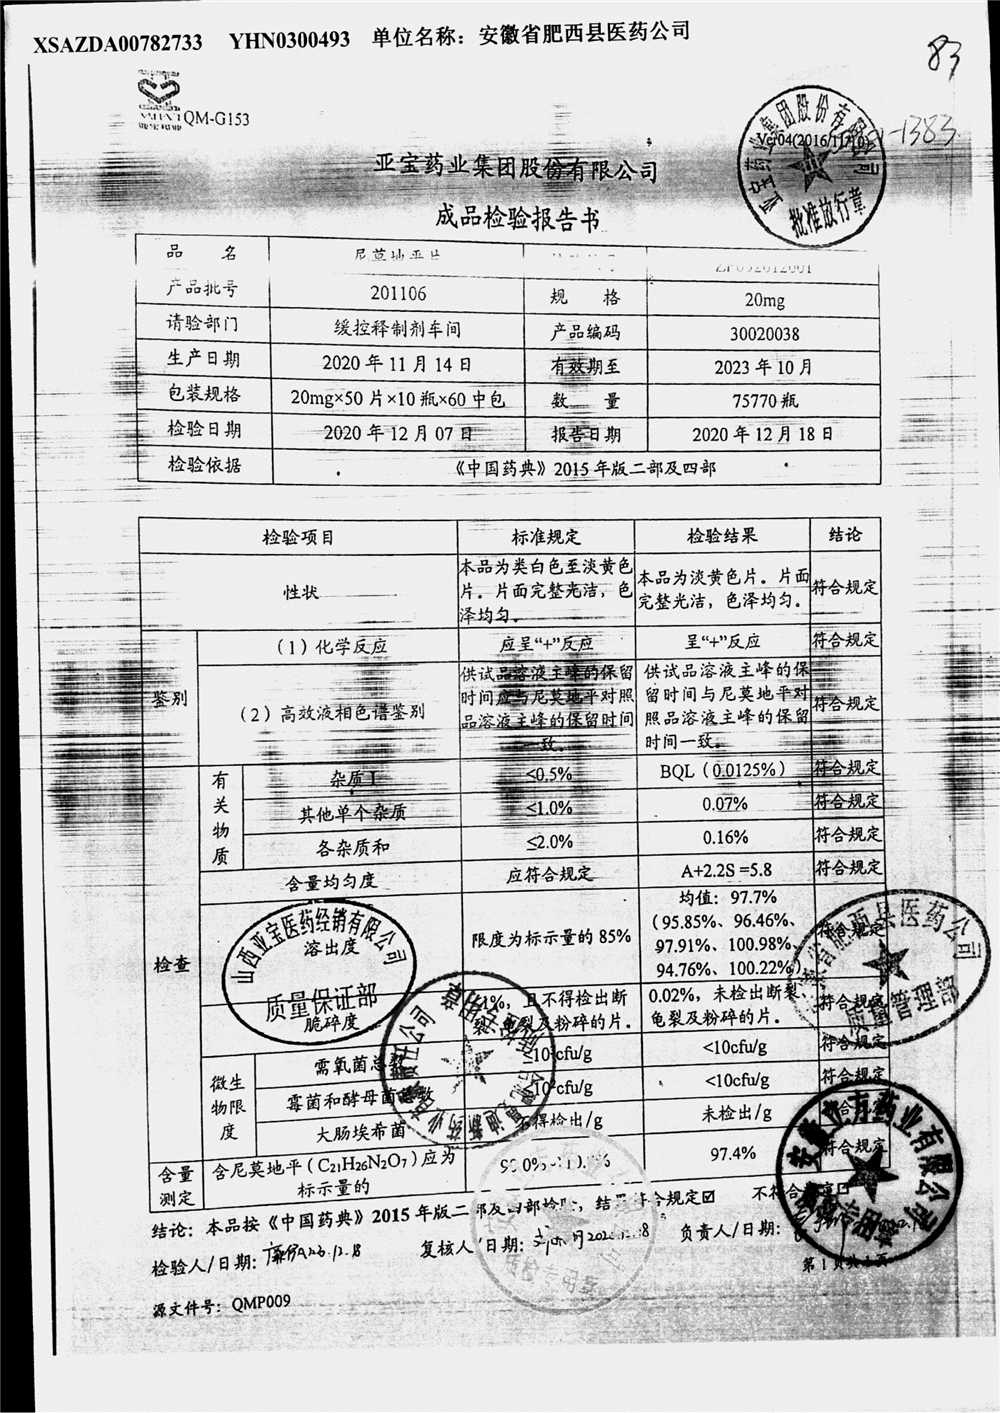 XSAZDA00782733 YHN0300493 单位名称：安徽省肥西县医药公司
83
QM-G153
Ver04(2016/11/10)
1383
亚宝药业集团股份有限公司
批准放行章
亚宝药业集团股份有限公司
成品检验报告书
品 名 尼莫地平片
产品批号 201106 规 格 20mg
请验部门 缓控释制剂车间 产品编码 30020038
生产日期 2020年11月14日 有效期至 2023年10月
包装规格 20mg×50片×10瓶×60中包 数 量 75770瓶
检验日期 2020年12月07日 报告日期 2020年12月18日
检验依据 《中国药典》2015年版二部及四部
检验项目 标准规定 检验结果 结论
性状 本品为类白色至淡黄色片。片面完整光洁，色泽均匀。 本品为淡黄色片。片面完整光洁，色泽均匀。 符合规定
鉴别 （1）化学反应 应呈“+”反应 呈“+”反应 符合规定
（2）高效液相色谱鉴别 供试品溶液主峰的保留时间应与尼莫地平对照品溶液主峰的保留时间一致。 供试品溶液主峰的保留时间与尼莫地平对照品溶液主峰的保留时间一致。 符合规定
检查 有关物质 杂质I ≤0.5% BQL（0.0125%） 符合规定
其他单个杂质 ≤1.0% 0.07% 符合规定
各杂质和 ≤2.0% 0.16% 符合规定
含量均匀度 应符合规定 A+2.2S =5.8 符合规定
溶出度 限度为标示量的85% 均值：97.7%（95.85%、96.46%、97.91%、100.98%、94.76%、100.22%） 符合规定
脆碎度 1%，且不得检出断裂、龟裂及粉碎的片。 0.02%，未检出断裂、龟裂及粉碎的片。 符合规定
微生物限度 需氧菌总数 cfu/g <10cfu/g 符合规定
霉菌和酵母菌总数 cfu/g <10cfu/g 符合规定
大肠埃希菌 不得检出/g 未检出/g 符合规定
含量测定 含尼莫地平（C21H26N2O7）应为标示量的 97.4% 符合规定
山西亚宝医药经销有限公司
质量保证部
安徽省肥西县医药公司
质量管理部
质检专用章
结论：本品按《中国药典》2015年版二部及四部检验，结果符合规定☑ 不符合规定□
检验人/日期： 复核人/日期： 负责人/日期：
第1页共1页
源文件号：QMP009